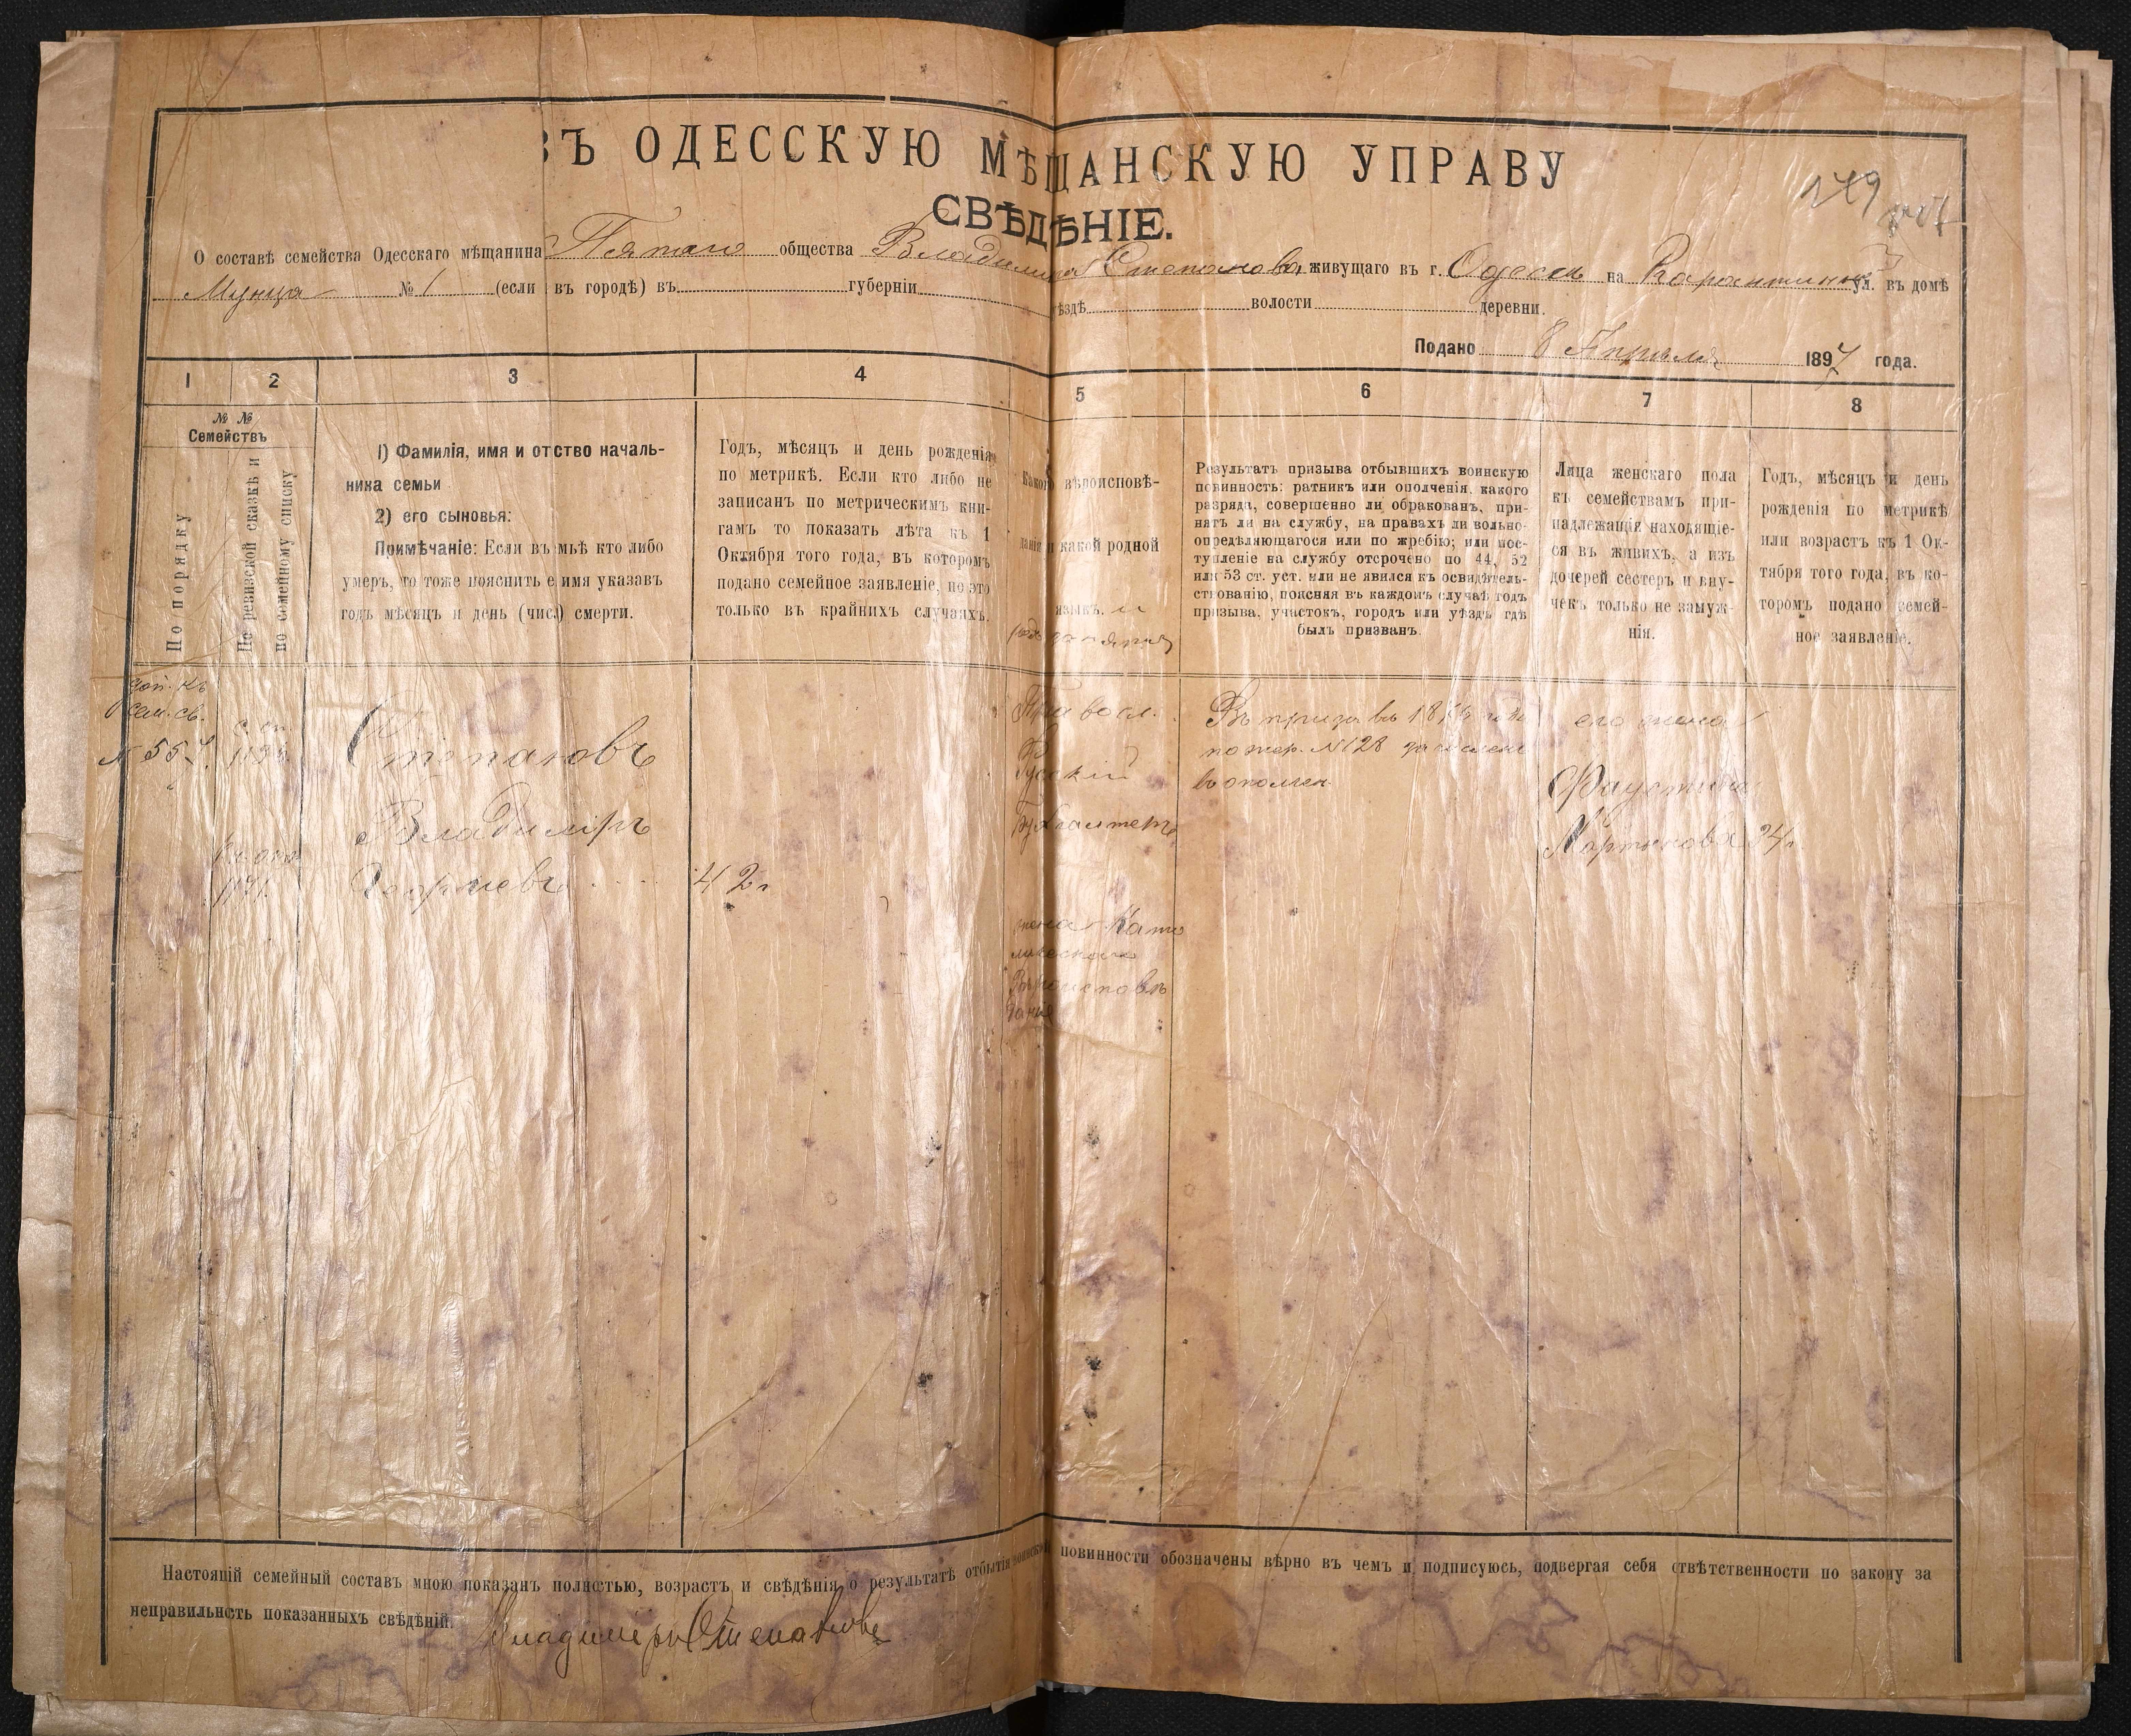 ВЪ ОДЕССКУЮ МѢЩАНСКУЮ УПРАВУ
СВѢДѢНІЕ.
179
О составѣ семейства Одесскаго мѣщанина Пятаго общества Владиміра Степанова, живущаго въ г. Одессѣ на Карантинной ул. въ домѣ
Мунца № 1 (если въ городѣ) въ губерніи уѣздѣ волости деревни.
Подано 8 Апрѣля 1897 года.
1 2 3 4 5 6 7 8
№ №
Семействъ
По порядку
По ревизской сказкѣ и
по семейному списку
1) Фамилія, имя и отство началь-
ника семьи
2) его сыновья:
Примѣчаніе: Если въ мьѣ кто либо
умеръ, то тоже пояснить е имя указавъ
годъ мѣсяцъ и день (чис.) смерти.
Годъ, мѣсяцъ и день рожденія
по метрикѣ. Если кто либо не
записанъ по метрическимъ кни-
гамъ то показать лѣта къ 1
Октября того года, въ которомъ
подано семейное заявленіе, но это
только въ крайнихъ случаяхъ.
Какого вѣроисповѣ-
данія и какой родной
языкъ. и
родъ занятія
Результатъ призыва отбывшихъ воинскую
повинность: ратникъ или ополченія, какого
разряда, совершенно ли обракованъ, при-
нятъ ли на службу, на правахъ ли вольно-
опредѣляющагося или по жребію; или пос-
тупленіе на службу отсрочено по 44, 52
или 53 ст. уст. или не явился къ освидѣтель-
ствованію, поясняя въ каждомъ случаѣ годъ
призыва, участокъ, городъ или уѣздъ гдѣ
былъ призванъ.
Лица женскаго пола
къ семействамъ при-
надлежащія находящіе-
ся въ живихъ, а изъ
дочерей сестеръ и вну-
чекъ только не замуж-
нія.
Годъ, мѣсяцъ и день
рожденія по метрикѣ
или возрастъ къ 1 Ок-
тября того года, въ ко-
торомъ подано семей-
ное заявленіе.
доп. къ
сем. св.
№ 557.
Степановъ
Владиміръ
Георгіевъ
42 г
Правосл.
Русскій
Бухгалтеръ
жена Като
лическаго
Вѣроисповѣ
данія
Въ призывѣ
по жер. № 128 зачисленъ
въ ополчен.
его жена
Фаустина
Мартынова 34 г
Настоящій семейный составъ мною показанъ полностью, возрастъ и свѣдѣнія о результатѣ отбытія воинской повинности обозначены вѣрно въ чемъ и подписуюсь, подвергая себя отвѣтственности по закону за
неправильность показанныхъ свѣдѣній. Владиміръ Степановъ